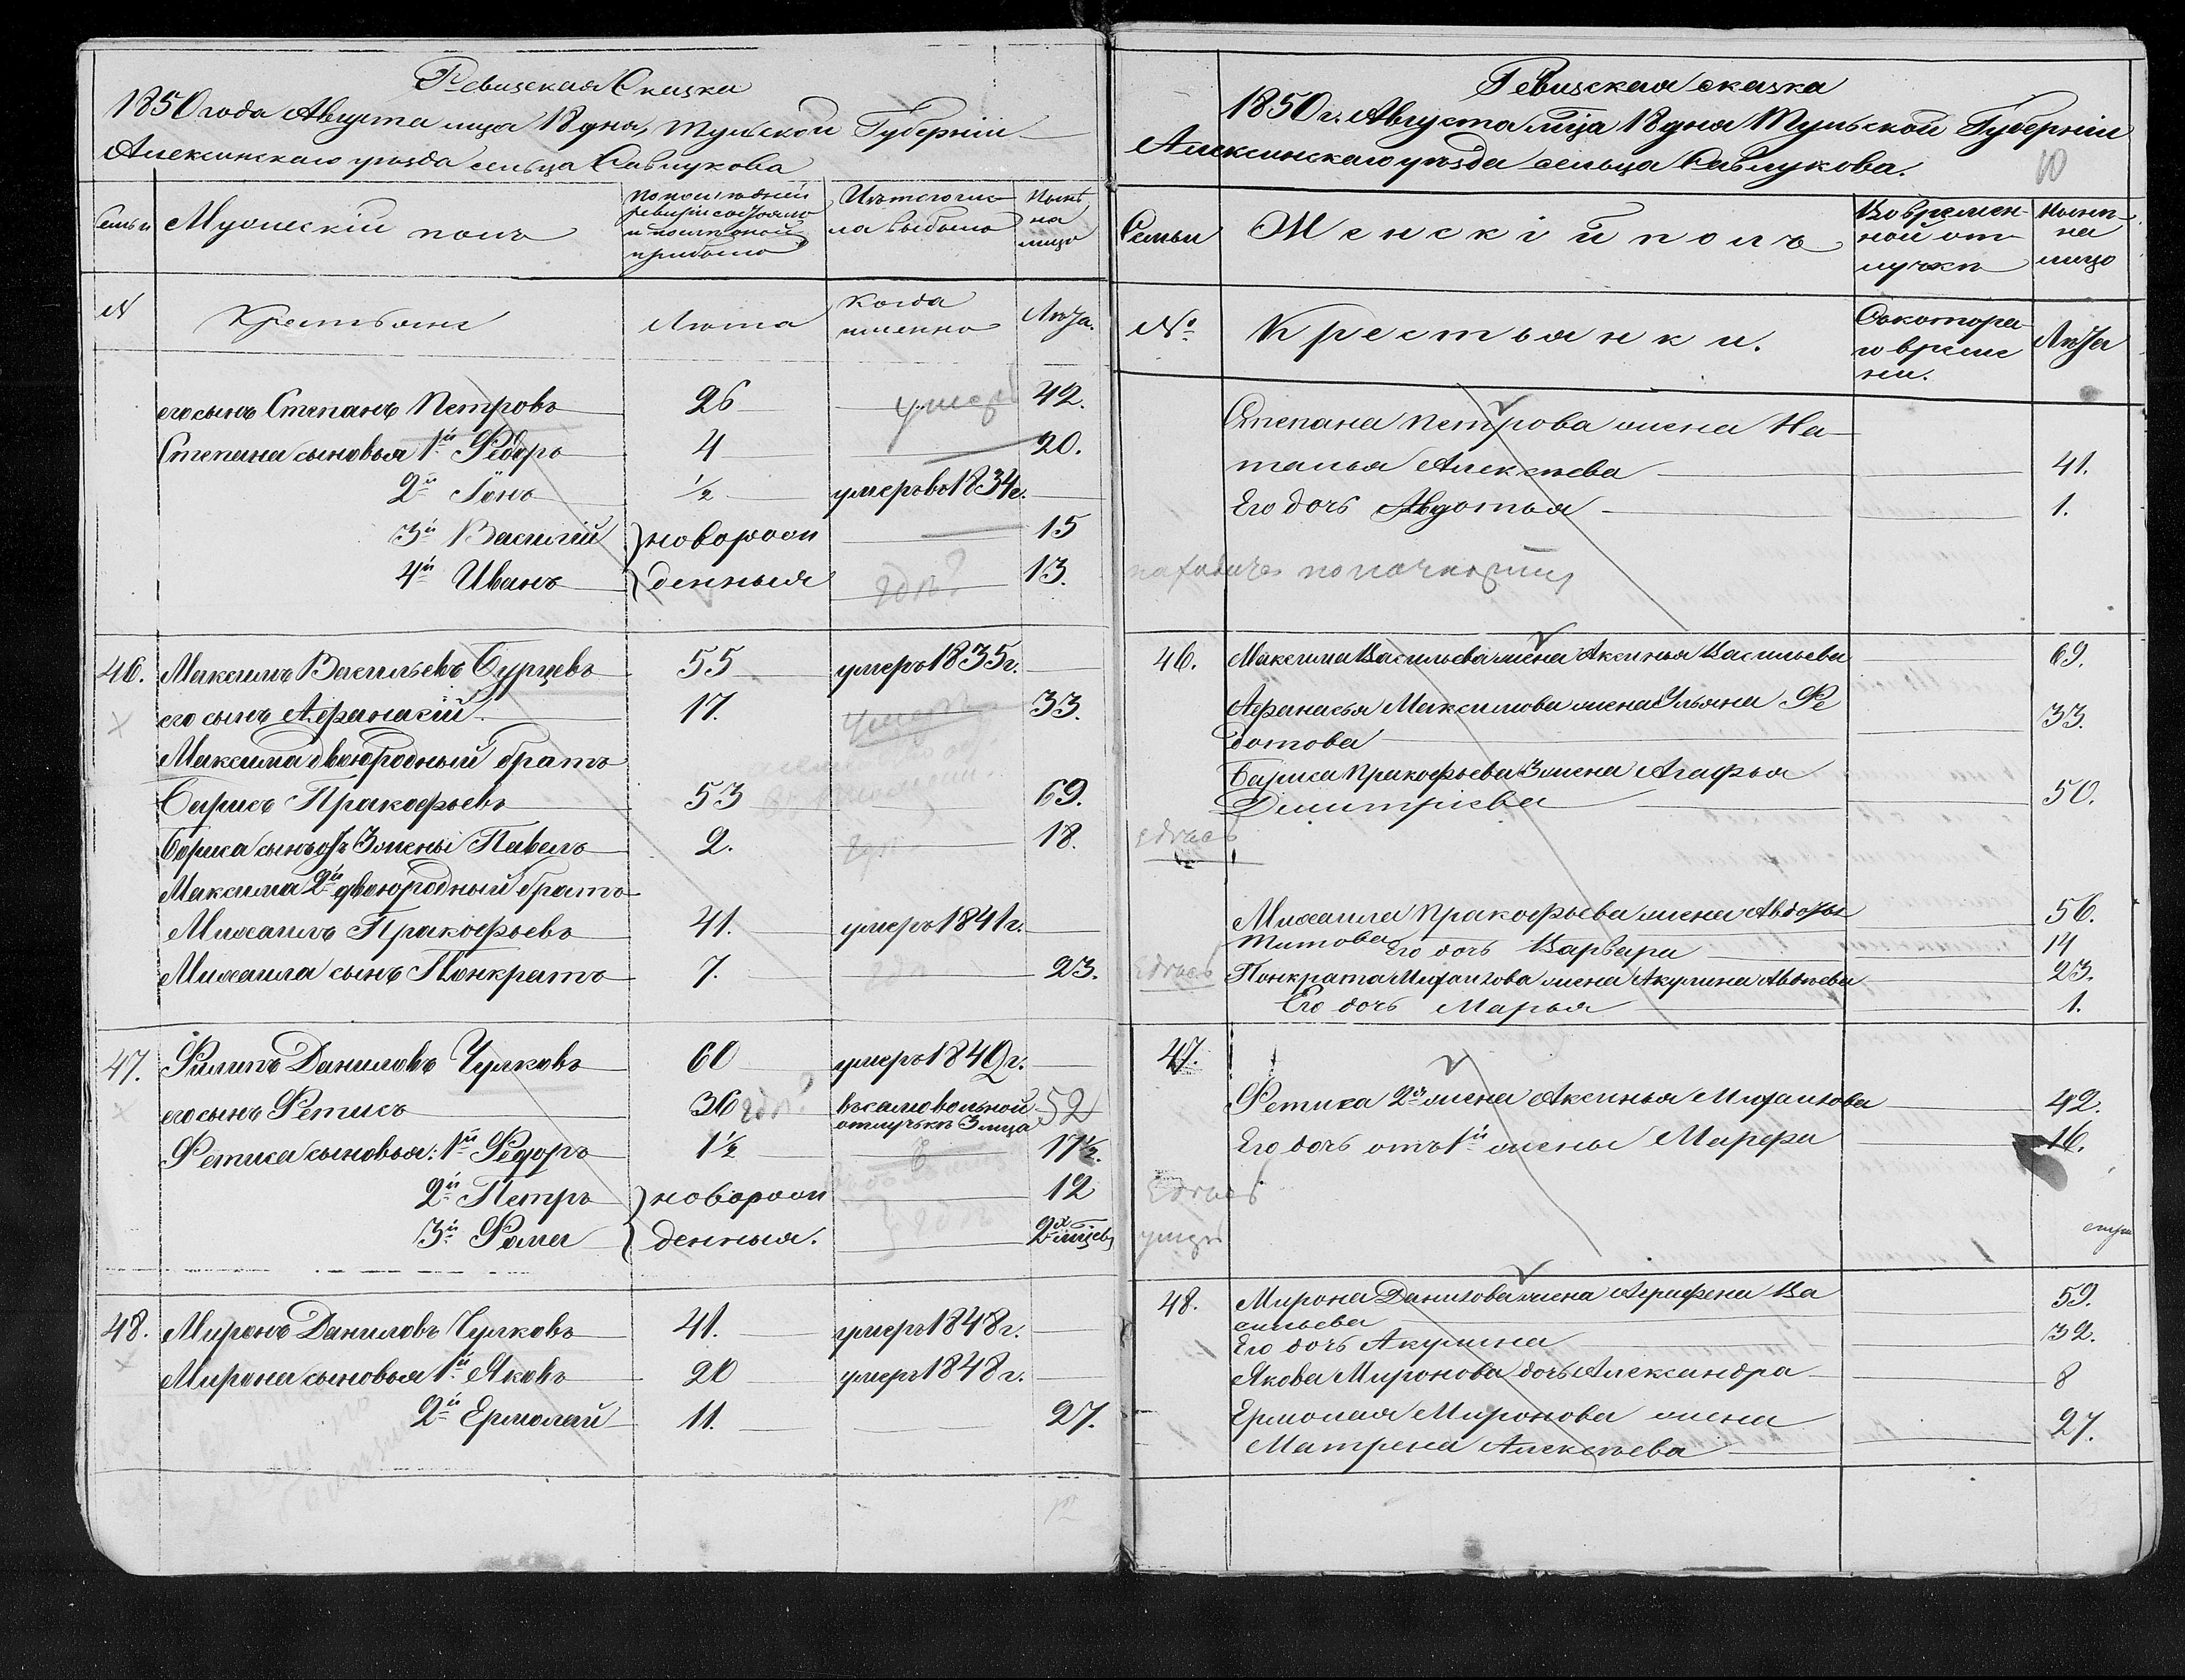 Ревизская Сказка
1850 года Августа мца 18 дня, Тульской Губерніи
Алексинскаго уѣзда сельца Савлукова
Семьи
Мужескій полъ
По последней
ревизіи состояло
и после оной
прибыло
Изъ того чис-
ла выбыло
Нынѣ
на
лицо
N
Крестьяне
Лѣта
когда
именно
Лѣта.
его сынъ Степанъ Петровъ 26 умеръ 42.
Степана сыновья 1й Ѳедоръ 4 20.
2й Іонъ ½ умеръ во 1834 г.
3й Василій } новорож 15
4й Иванъ } денныя гдѣ? 13.
46. Максимъ Васильевъ Бурцевъ 55 умеръ 1835 г.
его сынъ Аѳанасій 17. умеръ 33.
Максима двоюродный братъ
Борисъ Пракофьевъ 53 69.
Бориса сынъ отъ 3 жены Павелъ 2. 18.
Максима 2й двоюродный братъ
Михаилъ Пракофьевъ 41. умеръ 1841 г.
Михаила сынъ Понкратъ 7. 23.
47. Филипъ Даниловъ Чулковъ 60 умеръ 1840 г.
его сынъ Фетисъ 36 гдѣ? въ самовольной 52
отлучкѣ 3 мца
Фетиса сыновья: 1й Ѳедоръ 1½ 17½.
2й Петръ } новорож 12
3й Фома } денныя. 2х мцев
48. Миронъ Даниловъ Чулковъ 41. умеръ 1848 г.
Мирона сыновья 1й Яковъ 20 умеръ 1848 г.
2й Ермолай 11. 27.
Ревизская сказка
1850 г. Августа мца 18 дня Тульской Губерніи
Алексинскаго уѣзда сельца Савлукова.
10
Семьи
Женскій полъ
Во времен-
ной от-
лучкѣ
Нынѣ
на
лицо
№
Крестьянки.
Съ котора-
го време
ни.
Лѣта
Степана Петрова жена На-
талья Алексѣева 41.
Его дочь Авдотья 1.
46. Максима Васильева жена Аксинья Васильева 69.
Аѳанасья Максимова жена Ульяна Фе
дотова 33.
Бориса Пракофьева 3 жена Агафья
Димитріева 50.
Михаила Пракофьева жена Авдотья 56.
Титова Его дочь Варвара 14
Понкрата Михаилова жена Акулина Авдѣева 23.
Его дочь Марья 1.
47.
Фетиса 2я жена Аксинья Михаилова 42.
Его дочь отъ 1й жены Марфа 16.
умеръ
48. Мирона Данилова жена Агрифена Ва 59.
сильева
Его дочь Акулина 32.
Якова Миронова дочь Александра 8
Ермолая Миронова жена
Матрена Алексѣева 27.